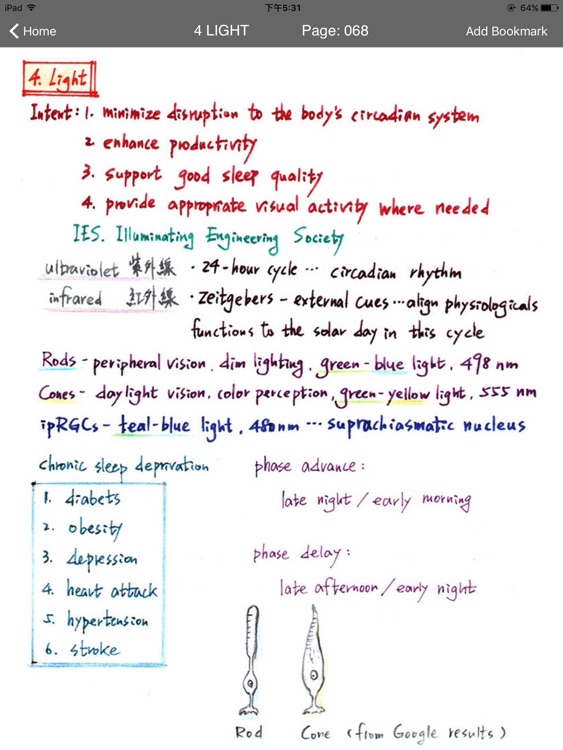 iPad 下午5:31 64%
Home 4 LIGHT Page: 068 Add Bookmark
4. Light
Intent: 1. minimize disruption to the body's circadian system
2. enhance productivity
3. support good sleep quality
4. provide appropriate visual activity where needed
IES. Illuminating Engineering Society
ultraviolet 紫外線 · 24-hour cycle ··· circadian rhythm
infrared 紅外線 · zeitgebers - external cues ··· align physiologicals
functions to the solar day in this cycle
Rods - peripheral vision, dim lighting, green-blue light, 498 nm
Cones - daylight vision, color perception, green-yellow light, 555 nm
ipRGCs - teal-blue light, 480nm ··· suprachiasmatic nucleus
chronic sleep deprivation
1. diabets
2. obesity
3. depression
4. heart attack
5. hypertension
6. stroke
phase advance:
late night / early morning
phase delay:
late afternoon / early night
Rod Cone (from Google results)